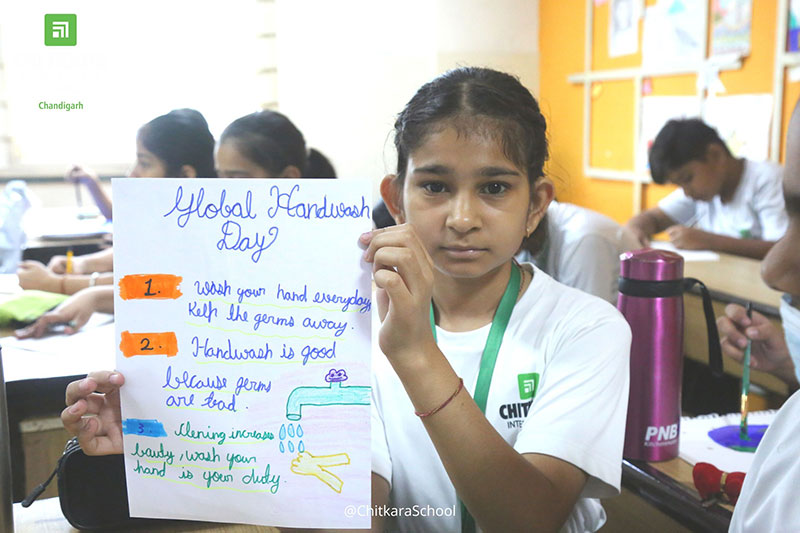 Chandigarh
Global Handwash
Day
1.
Wash your hand everyday
Kelp the germs away.
2.
Handwash is good
because germs
are bad.
3.
Clening increases
bauty, wash your
hand is your duty.
CHITK
INTE
PNB
@ChitkaraSchool